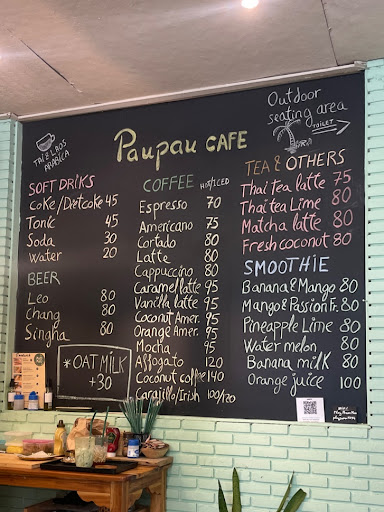 Paupau CAFE
TAI & LAOS
ARABICA
Outdoor
seating area
TOILET
SOFT DRiKS
CoKe/Dietcoke 45
Tonic 45
Soda 30
Water 20
BEER
Leo 80
Chang 80
Singha 80
*OAT MiLK
+30
COFFEE HOT/ICED
Espresso 70
Americano 75
Cortado 80
Latte 80
Cappuccino 80
Caramel latte 95
Vanilla latte 95
Coconut Amer. 95
Orange Amer. 95
Mocha 95
Affogato 120
Coconut coffee 140
Carajillo/Irish 100/120
TEA & OTHERS
Thai tea latte 75
Thai tea Lime 80
Matcha latte 80
Fresh coconut 80
SMOOTHIE
Banana & Mango 80
Mango & Passion Fr. 80
Pineapple Lime 80
Water melon 80
Banana milk 80
Orange juice 100